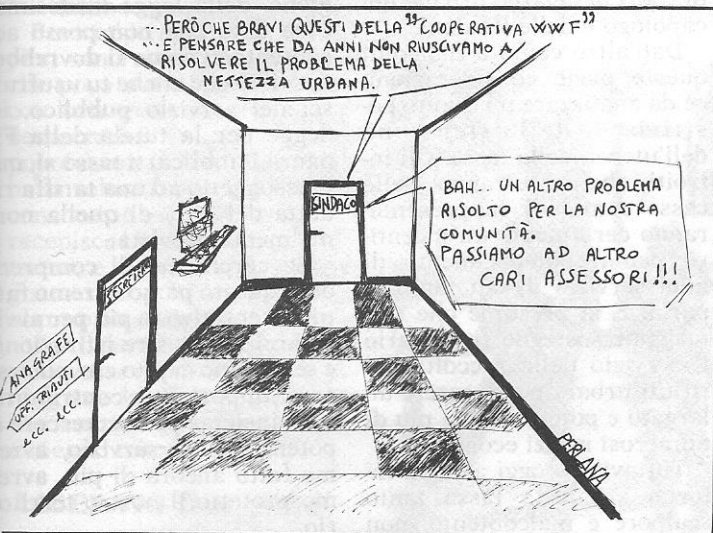 PERÒ CHE BRAVI QUESTI DELLA "COOPERATIVA WWF"
... E PENSARE CHE DA ANNI NON RIUSCIVAMO A
RISOLVERE IL PROBLEMA DELLA
NETTEZZA URBANA.
SINDACO
BAH.. UN ALTRO PROBLEMA
RISOLTO PER LA NOSTRA
COMUNITÀ.
PASSIAMO AD ALTRO
CARI ASSESSORI!!!
ANAGRAFE
UFF. TRIBUTI
ecc. ecc.
PERLANA